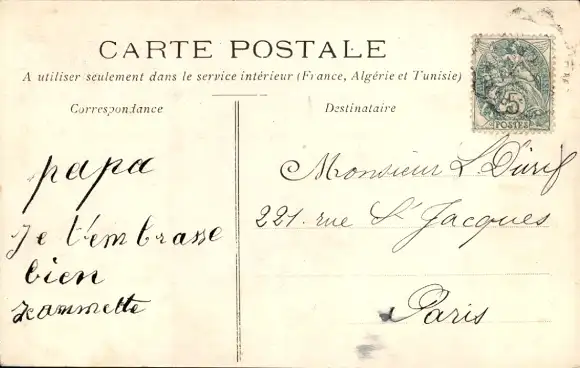 CARTE POSTALE
A utiliser seulement dans le service intérieur (France, Algérie et Tunisie)
Correspondance
Destinataire
papa
Je t'embrasse
bien
Jeannette
Monsieur L. Durif
221. rue St Jacques
Paris
5c
POSTES